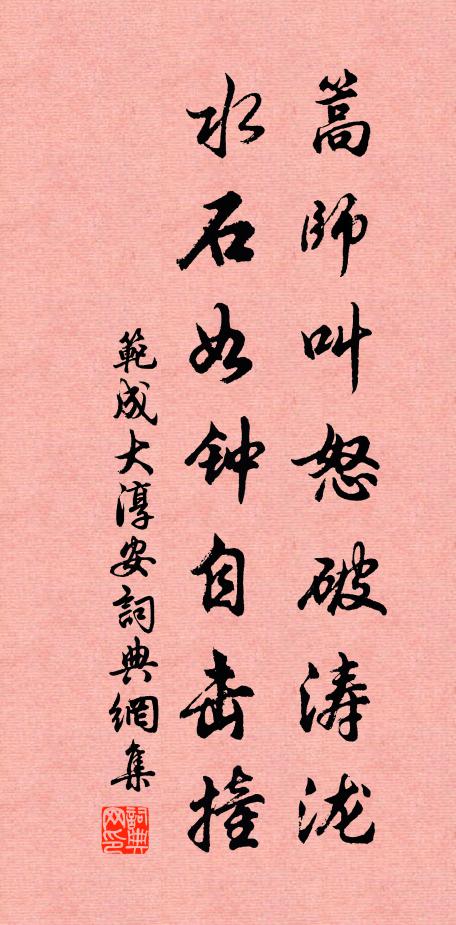 蒿師叫怒破涛泷
水石如钟自击撞
範成大淳安詞典網集
詞典网印